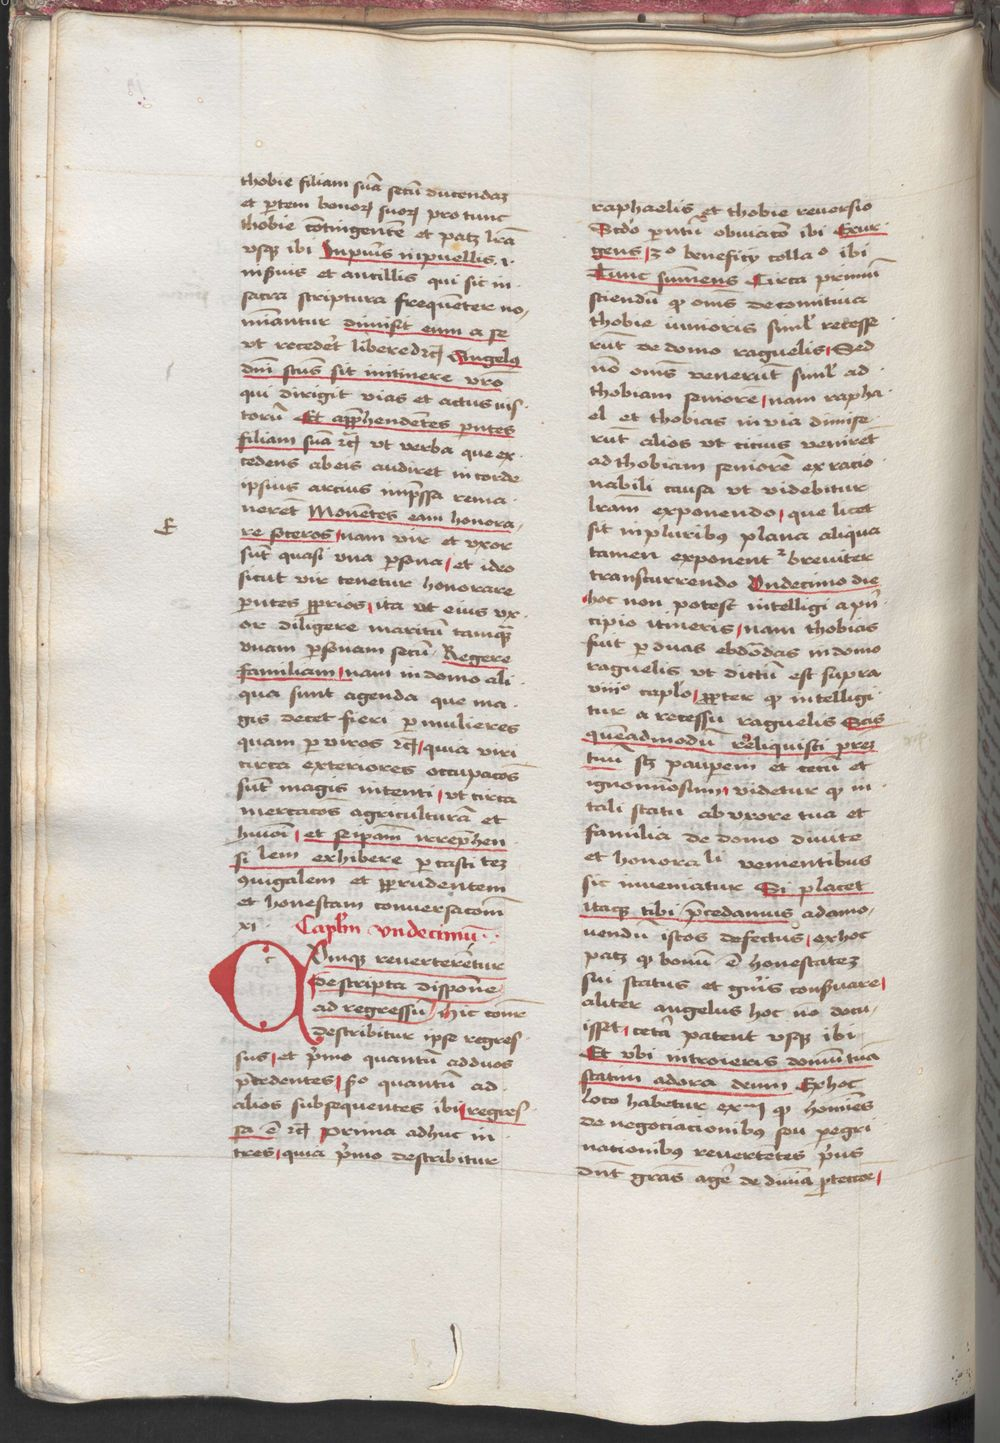 thobie filiam suā secū ducendaz
et p̄tem bonoꝝ suoꝝ pro tunc
thobie cōtingentē et patz lrā
vsqꝫ ibi In pūis in puellis .i.
in ẜuis et ancillis qui sic in
sacra scriptura frequēter no,
mīantur dimisit eum a se
vt recederꝫ libere ⁊cꝭ Angelꝯ
dnī scūs sit in itinere vrō
qui dirigit vias et actus iuis
torū Et app̄hendētes pntes
filiam suā ⁊cꝭ vt verba que ex
cedens ab eis audiret in corde
ipsius arcius imp̄ssa rema
nerēt Monētes eam honora,
re soceros nam vir et vxor
sūt quasi vna p̱sona et ideo
sicut vir tenetur honorare
pntes ꝓprios ita vt eius vx
or diligere maritū tamqꝫ
vnam p̱sonam secū Regere
familiam nam in domo ali
qua sunt agenda que ma
gis decet fieri p̱ mulieres
quam p̱ viros ⁊cꝭ quia viri
circa exteriores occupacōs
sūt magis intenti vt circa
mercacōs agriculturā et
hmōi et seipam̄ irrep̄hen
si lem exhibere p̱ casti tez
ꝯiugalem et ꝓprudentem
et honestam conuersacōm̄
xi Caplm̄ vndecimū
Qūmqꝫ reuerterētur
Descripta disp̄one
ad regressū hic cōnr̄
describitur ipse regres
sus et p̄mo quantū ad duos
p̄cedentes sꝰo quantū ad
alios subsequentes ibi regres
sa ē ⁊cꝭ prima adhuc in
tres quia p̄mo describitur
raphaelis et thobie reuersio
Scdō pntū obuiacō ibi Exur
gens 3º beneficij colla º ibi
Tunc sumens Circa primū
sciendū qꝫ om̄s de comitiua
thobie iunioris simul̄ recesse
rūt de domo raguelis Sed
nō om̄s venerūt simul̄ ad
thobiam seniorē nam rapha
el et thobias in via dimise
rūt alios vt cicius venirēt
ad thobiam seniorē ex racio
nabili causa vt videbitur
lrām exponendo que licet
sit in pluribꝯ plana aliqua
tamen exponent͛ breuiter
transcurrendo Vndecimo die
hoc non potest intelligi a p̄n
cipio itineris nam thobias
fuit p̱ duas ebdōdas in domo
raguelis vt dictū est supra
viiiº caplō ꝓpter qꝫ intelligi
tur a recessu raguelis Scis
quēadmodū reliquisti prez
tuū sꝫ pauperem et cecū et
ignomīosum videtur qꝫ in
tali statu ab vxore tua et
familia de domo diuite
et honora li venientibus
sic inueniatur Si placet
itaqꝫ tibi p̄cedamus ad amo,
uendū istos defectus ex hoc
patꝫ qꝫ bonū ē honestatez
sui status et gn̄is conẜuare
aliter angelus hoc nō docu,
isset cetā patent vsqꝫ ibi
Et vbi introieris domū tuā
statim adora deum Ex hoc
loco habetur exm̄ qꝫ homīes
de negociacionibꝯ seu p̱egri
nationibꝯ reuertētes p̄us
dn̄t grās agē de diuīa p̄teccōe